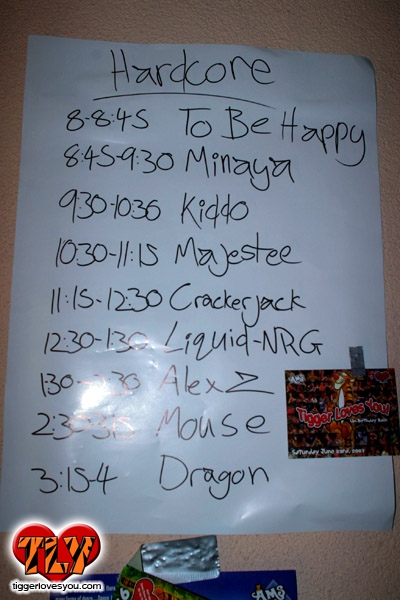 Hardcore
8-8:45 To Be Happy
8:45-9:30 Minaya
9:30-10:30 Kiddo
10:30-11:15 Majestee
11:15-12:30 Crackerjack
12:30-1:30 Liquid-NRG
1:30-2:30 Alex Z
2:30-3:15 Mouse
3:15-4 Dragon
AMS
Tigger Loves You!
Saturday June 23rd, 2007
TLY
tiggerlovesyou.com